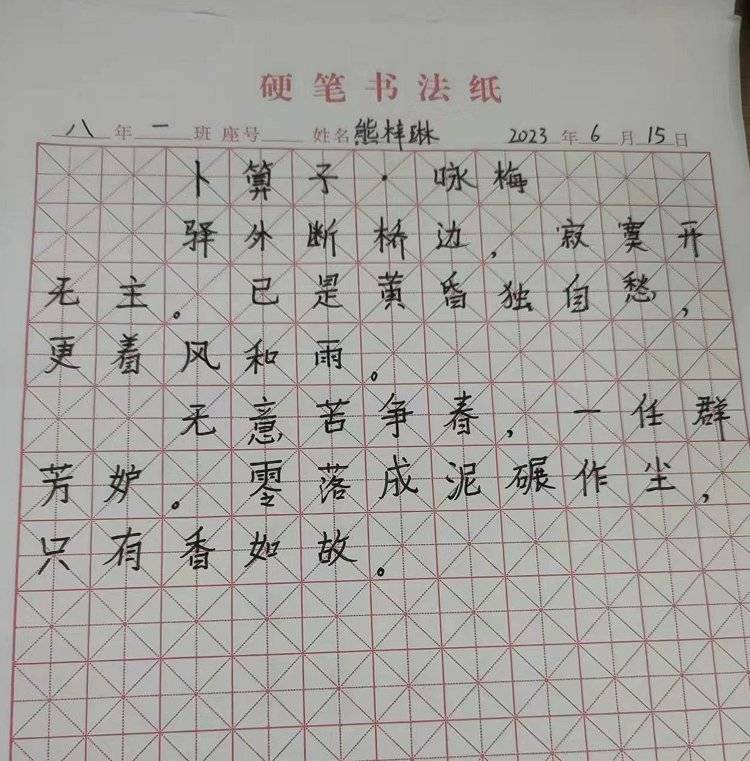 硬笔书法纸
八年一班 座号 姓名熊梓琳 2023年6月15日
卜算子·咏梅
驿外断桥边，寂寞开
无主。已是黄昏独自愁，
更着风和雨。
无意苦争春，一任群
芳妒。零落成泥碾作尘，
只有香如故。